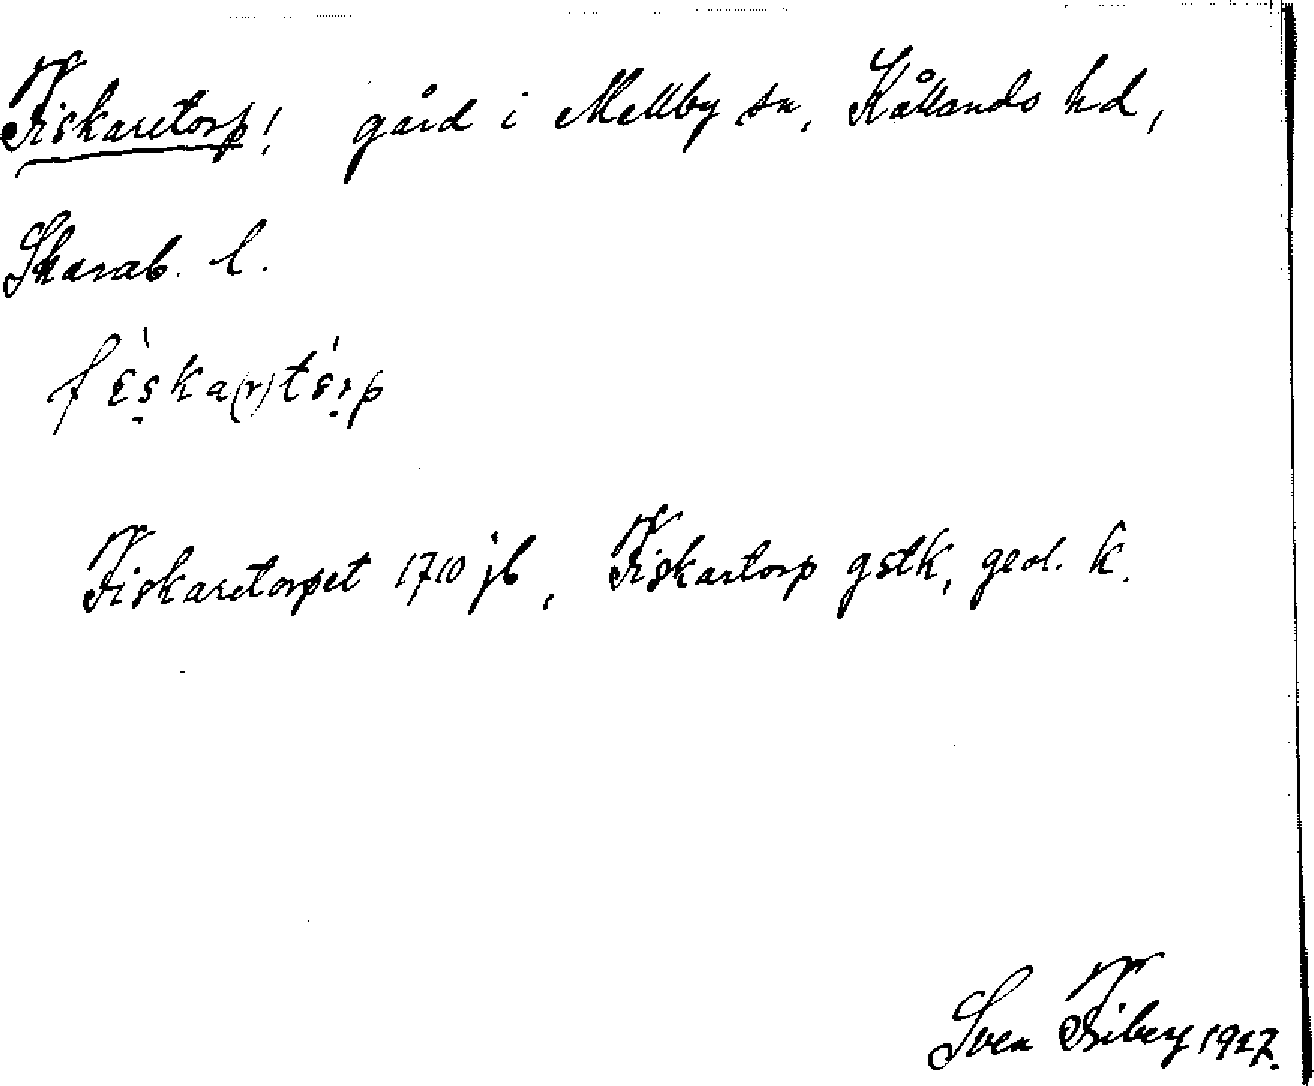 Fiskaretorp! gård i Mellby sn, Kållands hd,
Skarab. l.
fɛ̀ska(r)tɵ́rp
Fiskaretorpet 1710 jb, Fiskartorp gstk, geol. k.
Sven Fiberg 1927.